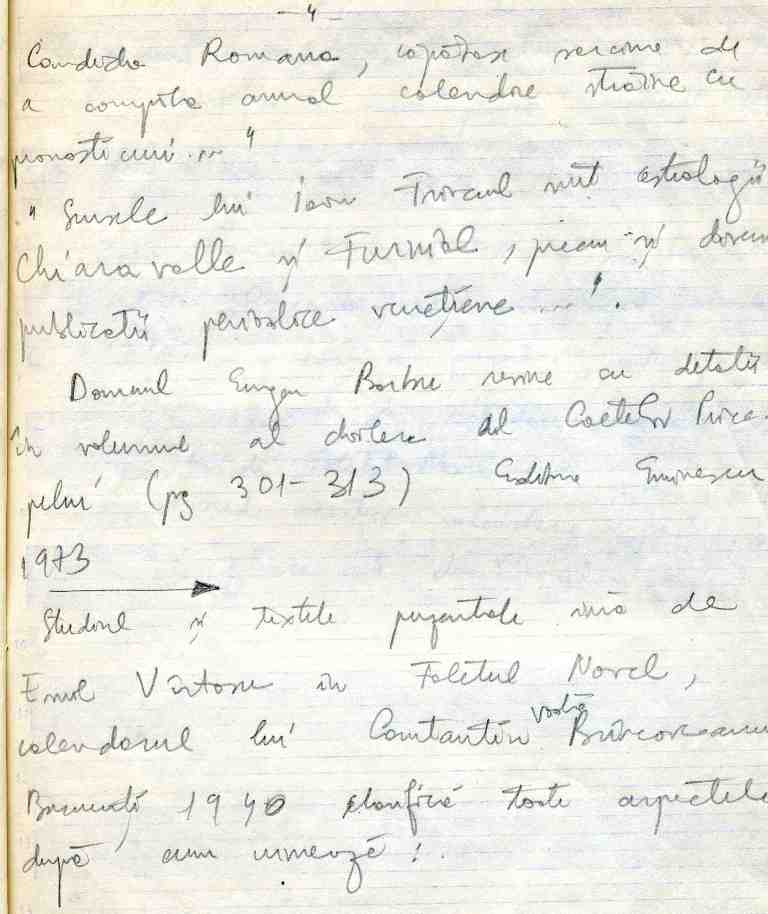 - 4 -
Românească, căpătase sarcina de
a compila anual calendare străine cu
pronosticuri..."
"Sursele lui Ioan Frincul sunt astrologii
Chiaravalle și Furnial, precum și diverse
publicații periodice venețiene ...".
Domnul Eugen Barbu revine cu detalii
în volumul al doilea al Caietelor Princi-
pelui (pg 301-313) Editura Eminescu
1973
Studiul și textele prezentate însă de
Emil Vîrtosu în Foletul Novel,
calendarul lui Constantin Vodă Brîncoveanu
București 1940 clarifică toate aspectele
după cum urmează: